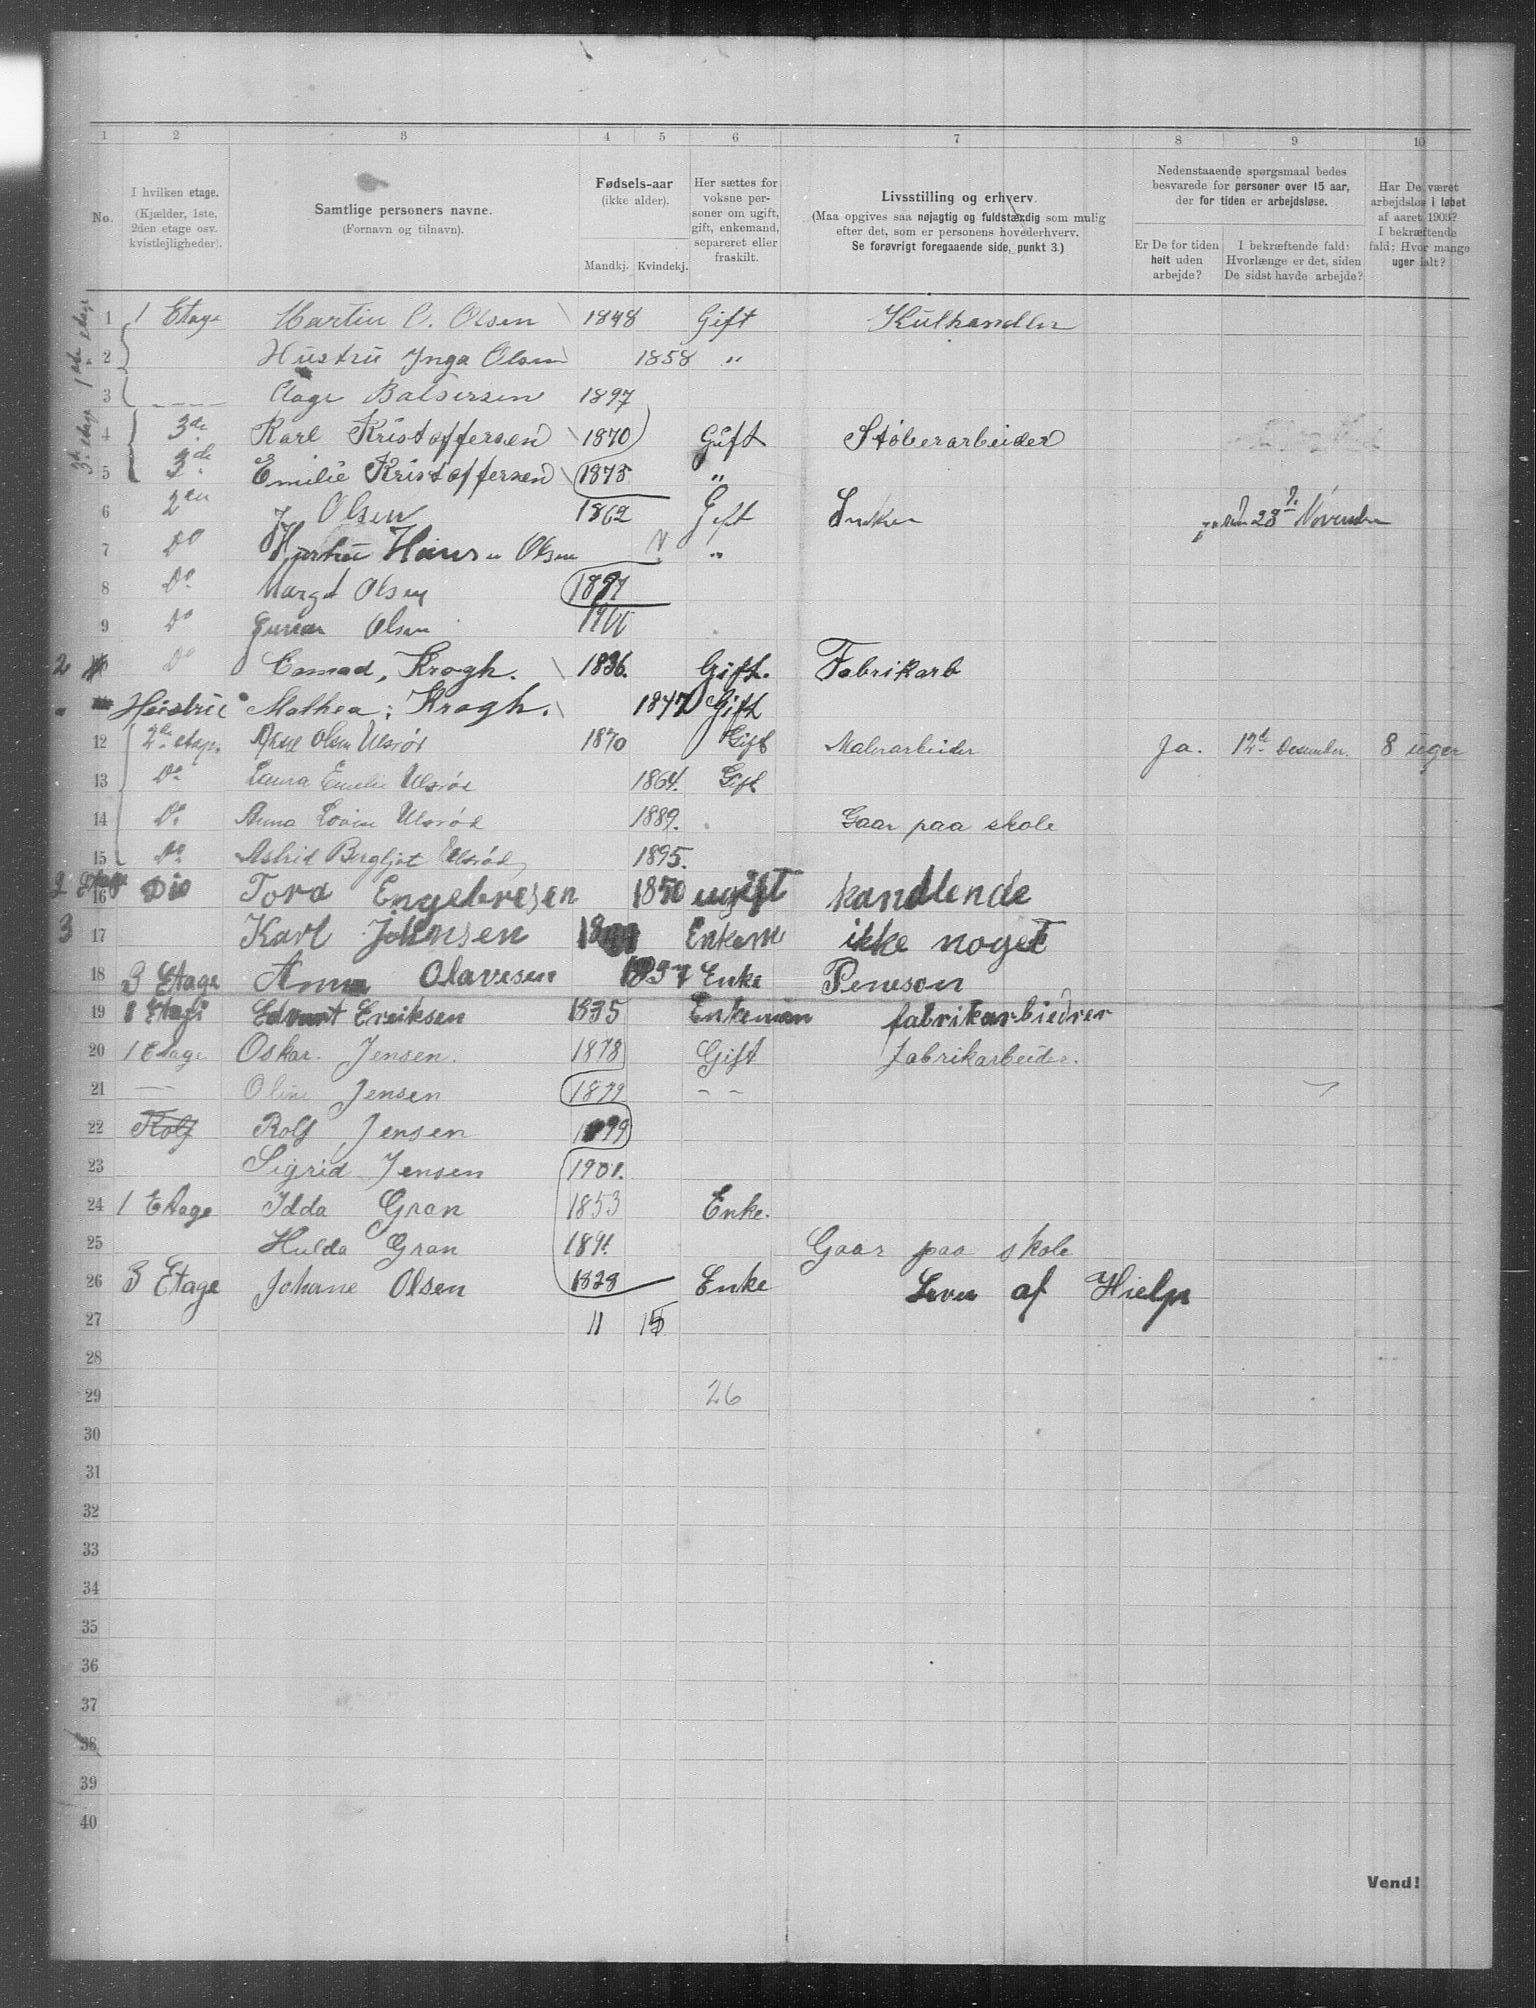 1 2 3 4 5 6 7 8 9 10
No.
I hvilken etage.
(Kjælder, 1ste,
2den etage osv.
kvistlejligheder).
Samtlige personers navne.
(Fornavn og tilnavn).
Fødsels-aar
(ikke alder).
Mandkj. Kvindekj.
Her sættes for
voksne per-
soner om ugift,
gift, enkemand,
separeret eller
fraskilt.
Livsstilling og erhverv.
(Maa opgives saa nøjagtig og fuldstændig som mulig
efter det, som er personens hovederhverv.
Se forøvrigt foregaaende side, punkt 3.)
Nedenstaaende spørgsmaal bedes
besvarede for personer over 15 aar,
der for tiden er arbejdsløse.
Er De for tiden
helt uden
arbejde?
I bekræftende fald:
Hvorlænge er det, siden
De sidst havde arbejde?
Har De været
arbejdsløs i løbet
af aaret 1903?
I bekræftende
fald: Hvor mange
uger ialt?
1ste etage
3die etage
1 1 Etage Martin C. Olsen 1848 Gift Kulhandler
2 Hustru Inga Olsen 1858 "
3 Aage Balsersen 1897
4 3de Karl Kristoffersen 1870 Gift Støberarbeider
5 3de Emilie Kristoffersen 1875 "
6 2den J Olsen 1862 Gift den 28 November
7 Do Hustru Olsen "
8 Do Margit Olsen 1897
9 Do Gunnar Olsen 1900
2 Do Conrad, Krogh. 1836. Gift. Fabrikarb
Hustru Mathea, Krogh. 1847 Gift
12 2de etage Olsen Ulsrød 1870 Gift Malerarbeider Ja. 12te Desember. 8 uger
13 Do Laura Emelie Ulsrød 1864. Gift
14 Do Anna Lovise Ulsrød 1889. Gaar paa skole
15 Do Astrid Bergljot Ulsrød 1895.
2 Etage 16 Dio Tora Engebresen 1850 ugift handlende
3 17 Karl Johnsen Enkem ikke noget
18 3 Etage Anna Olavesen 1857 Enke Penson
19 1 Etage Edvart Ereiksen 1835 Enkeman fabrikarbiedrer
20 1 Etage Oskar. Jensen. 1878 Gift fabrikarbeider.
21 — Oline Jensen 1879 - -
22 Rolf Rolf Jensen 1899
23 Sigrid Jensen 1901.
24 1 Etage Idda Gran 1853 Enke.
25 Hulda Gran 1891. Gaar paa skole
26 3 Etage Johane Olsen 1828 Enke Lever af Hielp
27 11 15
28
29 26
30
31
32
33
34
35
36
37
38
39
40
Vend!